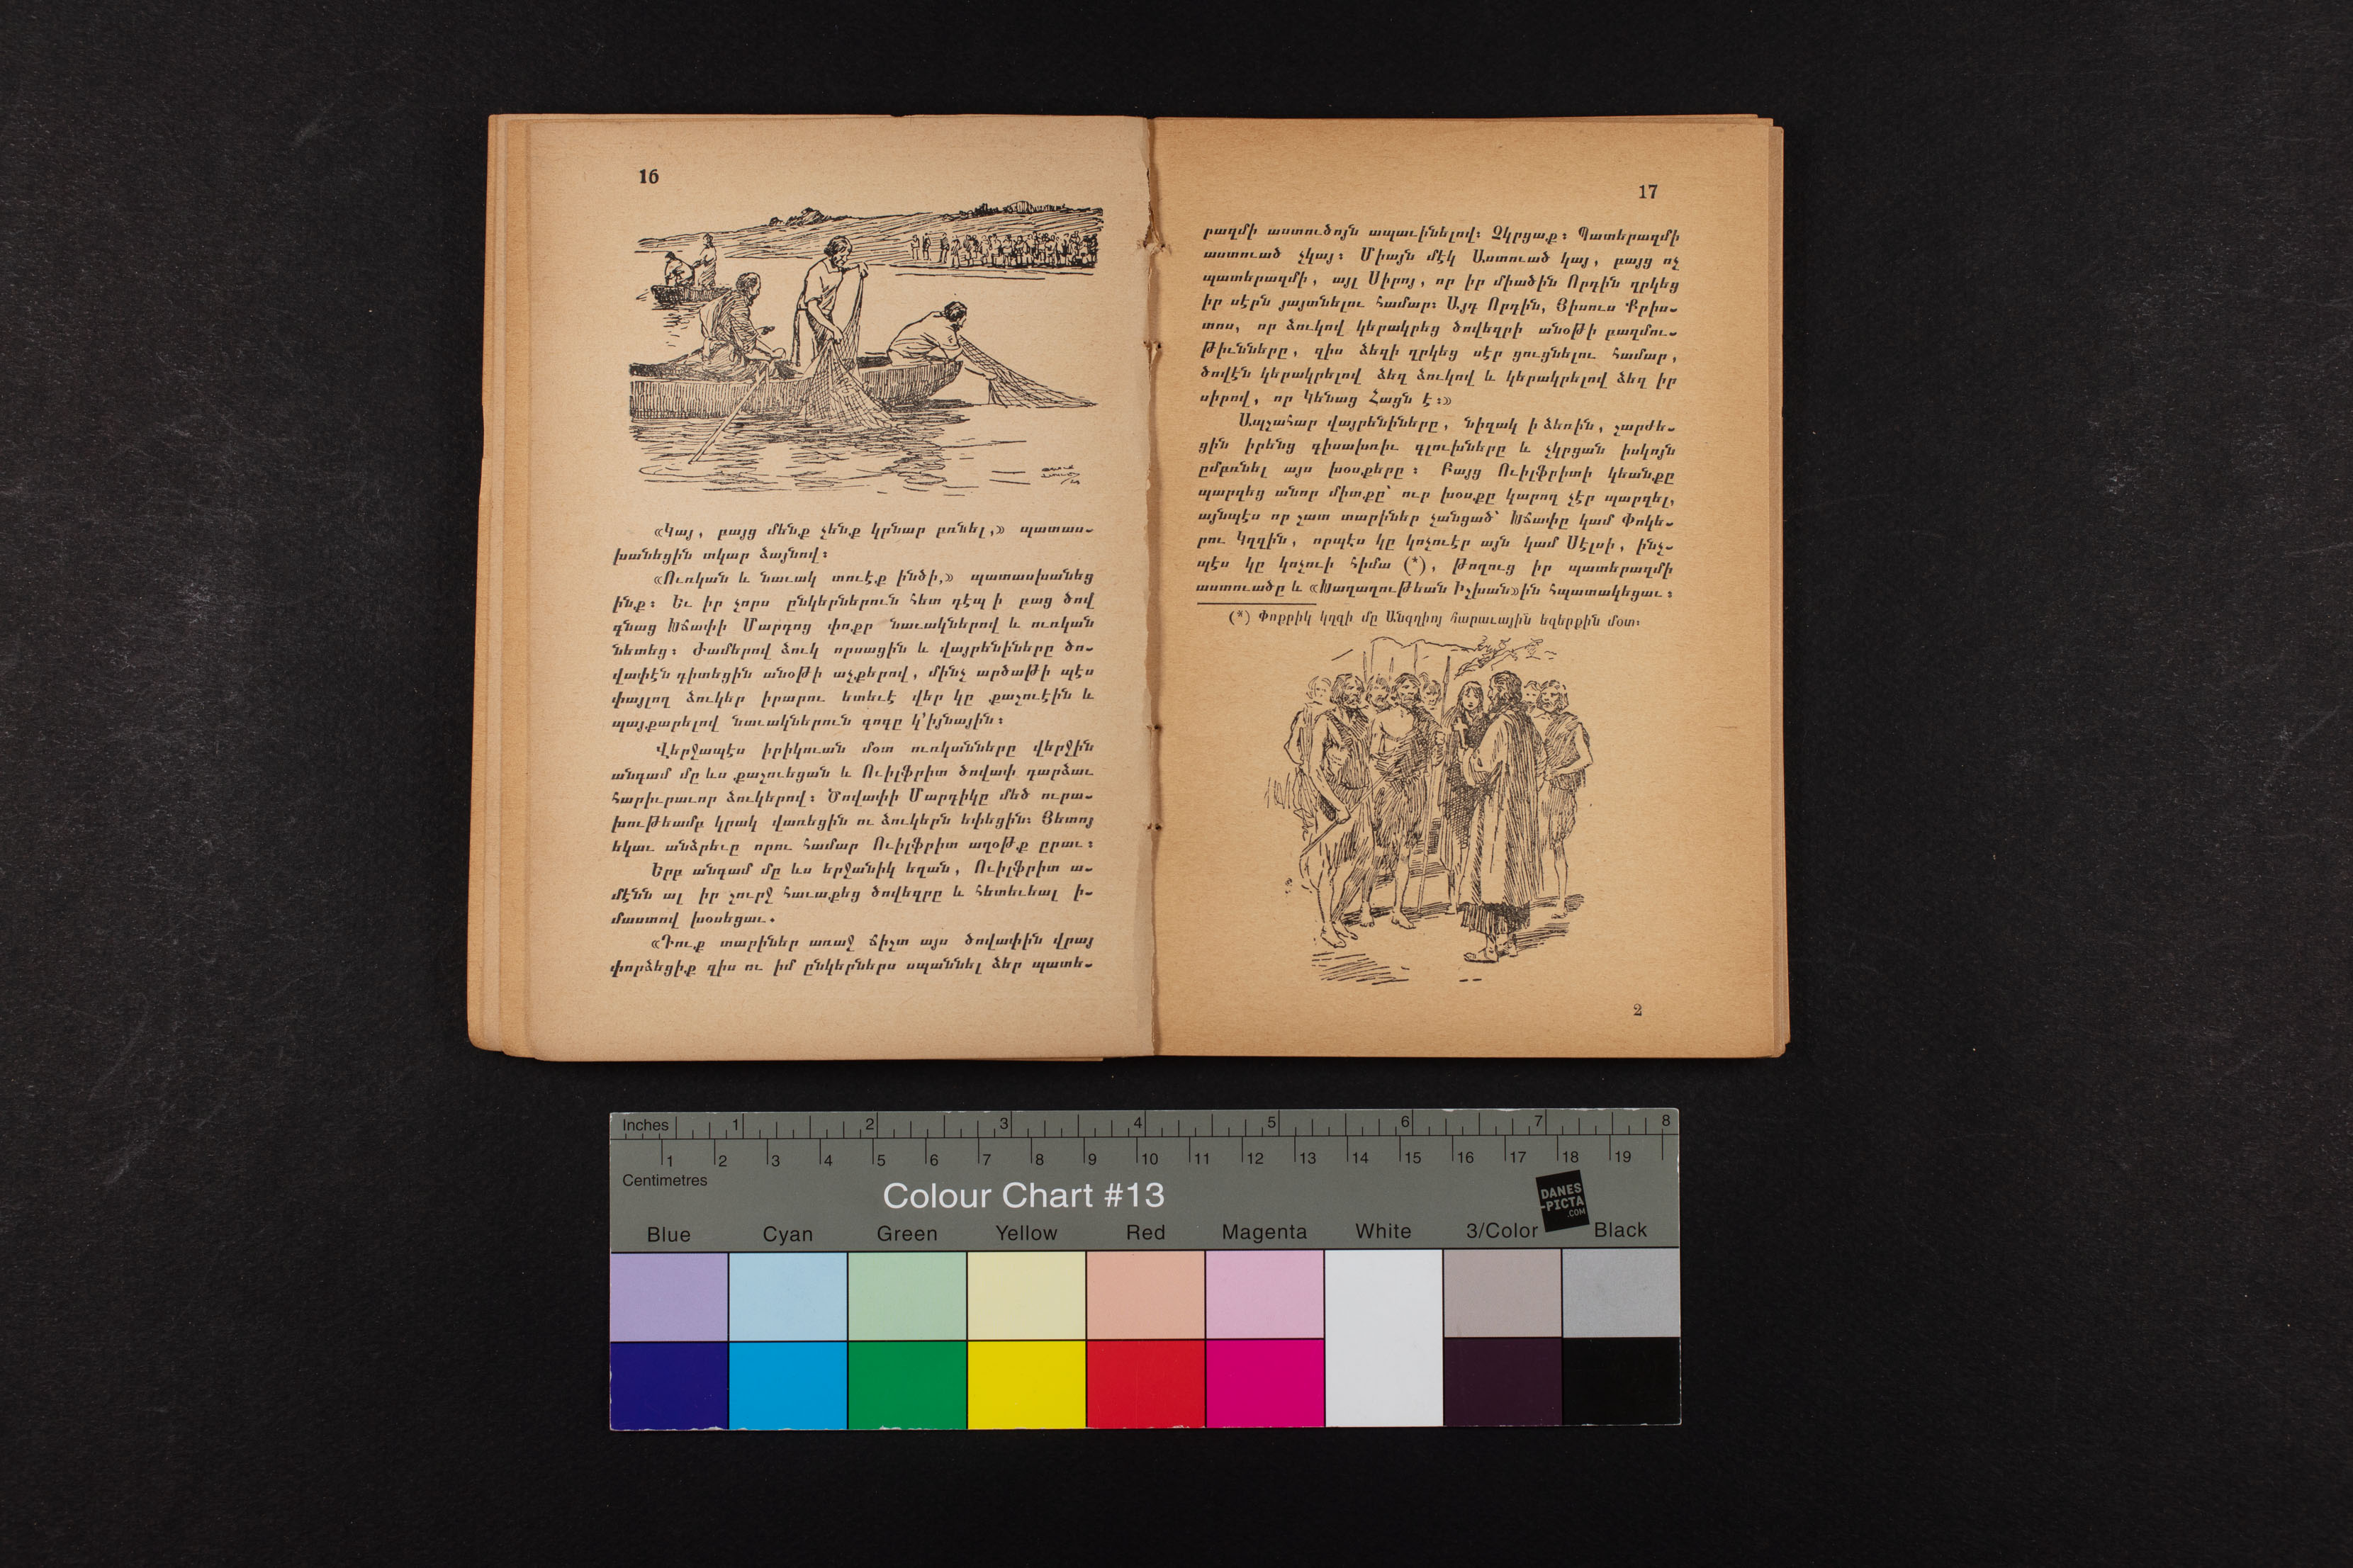 16
«Կայ, բայց մենք չենք կրնար բռնել,» պատաս-
խանեցին տկար ձայնով:
«Ուռկան և նաւակ տուէք ինծի,» պատասխանեց
ինք: Եւ իր չորս ընկերներուն հետ դէպ ի բաց ծով
գնաց Խճափի Մարդոց փոքր նաւակներով և ուռկան
նետեց: Ժամերով ձուկ որսացին և վայրենիները ծո-
վափէն դիտեցին անօթի աչքերով, մինչ արծաթի պէս
փայլող ձուկեր իրարու ետեւէ վեր կը քաշուէին և
պայքարելով նաւակներուն գողը կ՚իյնային:
Վերջապէս իրիկուան մօտ ուռկանները վերջին
անգամ մը ևս քաշուեցան և Ուիլֆրիտ ծովափ դարձաւ
հարիւրաւոր ձուկերով: Ծովափի Մարդիկը մեծ ուրա-
խութեամբ կրակ վառեցին ու ձուկերն եփեցին: Յետոյ
եկաւ անձրեւը որու համար Ուիլֆրիտ աղօթք ըրաւ:
Երբ անգամ մը ևս երջանիկ եղան, Ուիլֆրիտ ա-
մէնն ալ իր շուրջ հաւաքեց ծովեզրը և հետեւեալ ի-
մաստով խօսեցաւ.
«Դուք տարիներ առաջ ճիշտ այս ծովափին վրայ
փորձեցիք զիս ու իմ ընկերներս սպաննել ձեր պատե-
17
րազմի աստուծոյն ապաւինելով: Չկրցաք: Պատերազմի
աստուած չկայ: Միայն մէկ Աստուած կայ, բայց ոչ
պատերազմի, այլ Սիրոյ, որ իր միածին Որդին ղրկեց
իր սէրն յայտնելու համար: Այդ Որդին, Յիսուս Քրիս-
տոս, որ ձուկով կերակրեց ծովեզրի անօթի բազմու-
թիւնները, զիս ձեզի ղրկեց սէր ցուցնելու համար,
ծովէն կերակրելով ձեզ ձուկով և կերակրելով ձեզ իր
սիրով, որ Կենաց Հացն է:»
Ապշահար վայրենիները, նիզակ ի ձեռին, շարժե-
ցին իրենց գիսախռիւ գլուխները և չկրցան իսկոյն
ըմբռնել այս խօսքերը: Բայց Ուիլֆրիտի կեանքը
պարզեց անոր միտքը՝ ուր խօսքը կարող չէր պարզել,
այնպէս որ շատ տարիներ չանցած՝ Խճափը կամ Փոկե-
րու Կղզին, որպէս կը կոչուէր այն կամ Սէլսի, ինչ-
պէս կը կոչուի հիմա (*), թողուց իր պատերազմի
աստուածը և «Խաղաղութեան Իշխան»ին հպատակեցաւ:
(*) Փոքրիկ կղզի մը Անգղիոյ հարաւային եզերքին մօտ:
2
Inches 1 2 3 4 5 6 7 8
1 2 3 4 5 6 7 8 9 10 11 12 13 14 15 16 17 18 19
Centimetres
Colour Chart #13
DANES
-PICTA
.COM
Blue Cyan Green Yellow Red Magenta White 3/Color Black